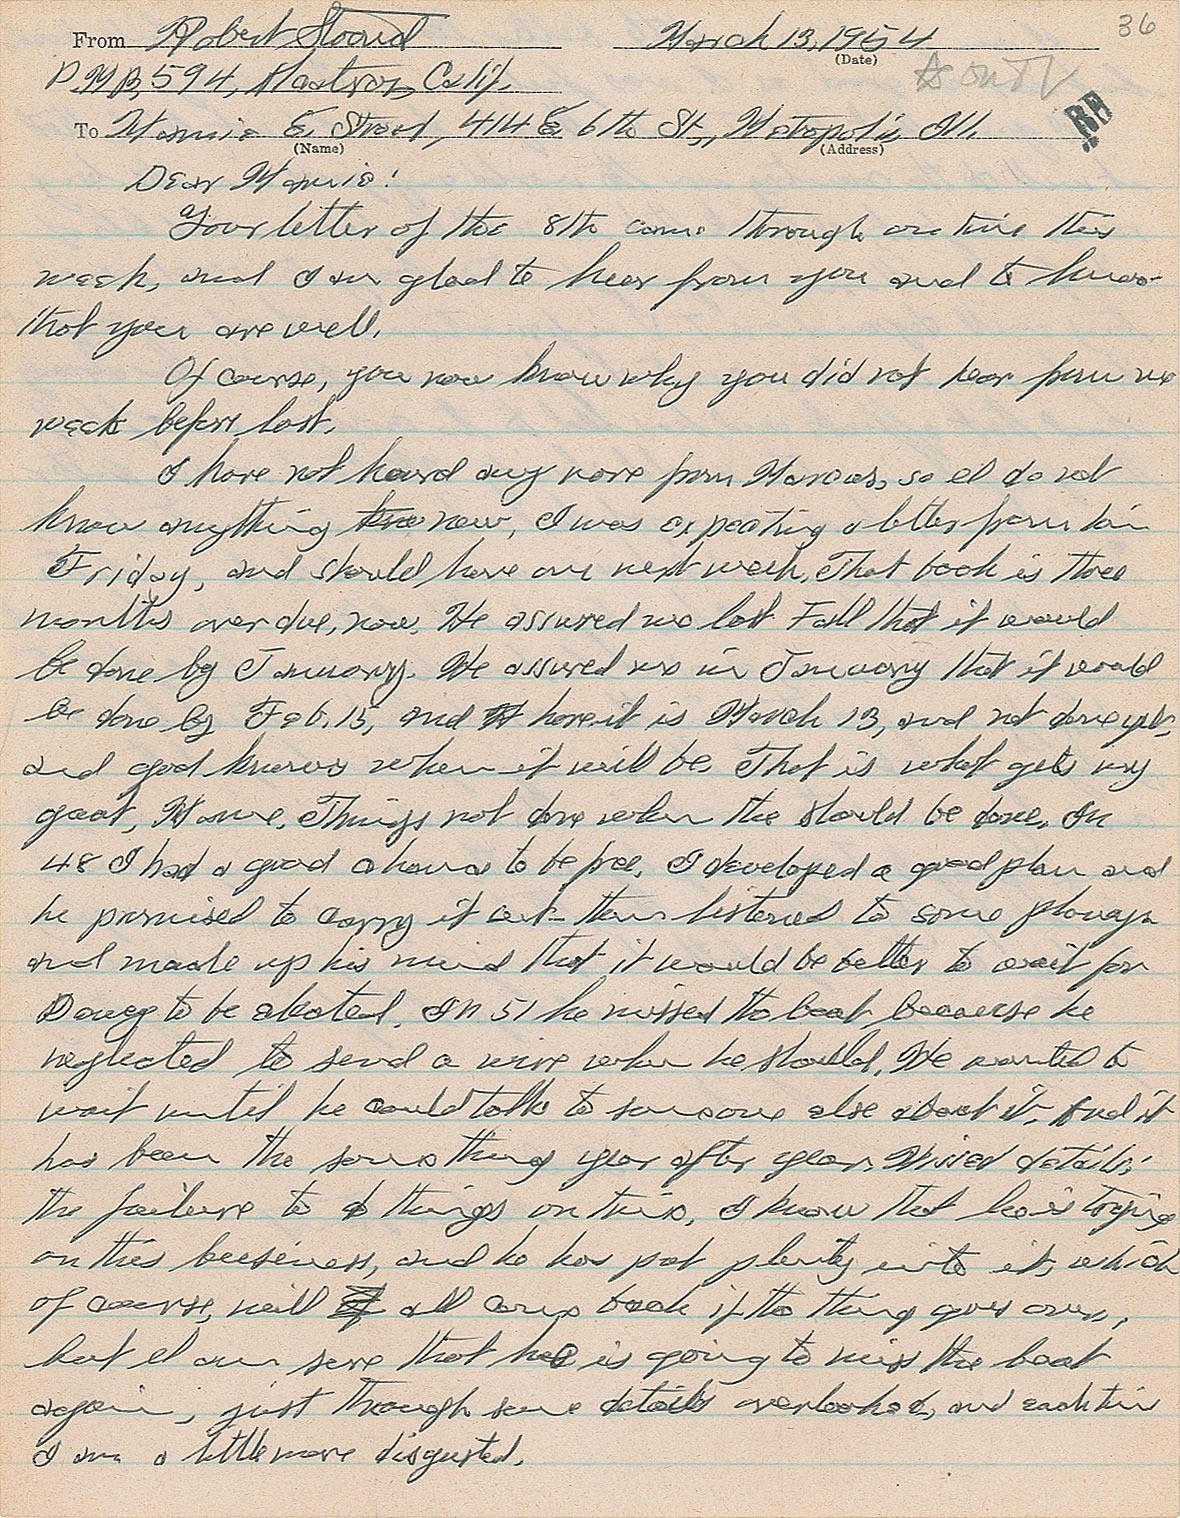 36
From Robert Stroud March 13, 1954
(Date)
P.M.B. 594, Alcatraz, Calif.
To Mamie E. Stroud, 414 E 6th St., Metropolis, Ill.
(Name) (Address)
Dear Mamie:
Your letter of the 8th came through on time this
week, and I am glad to hear from you and to know
that you are well.
Of course, you now know why you did not hear from me
week before last.
I have not heard any more from Marcus, so I do not
know anything new, I was expecting a letter from him
Friday, and should have one next week. That book is three
months over due, now. He assured me last Fall that it would
be done by January. He assured me in January that it would
be done by Feb. 15, and here it is March 13, and not done yet,
and god knows when it will be. That is what gets my
goat, Mamie. Things not done when the should be done. In
48 I had a good chance to be free. I developed a good plan and
he promised to carry it out - then listened to some
and made up his mind that it would be better to wait for
Dewey to be elected. In 51 he missed the boat because he
neglected to send a wire when he should. He wanted to
wait until he could talk to someone else about it. And it
has been the same thing year after year. Missed details;
the failure to do things on time. I know that he is trying
on this business, and he has put plenty into it, which
of course, will all come back if the thing goes over,
but I am sure that he is going to miss the boat
again, just through some details overlooked, and each time
I am a little more disgusted.